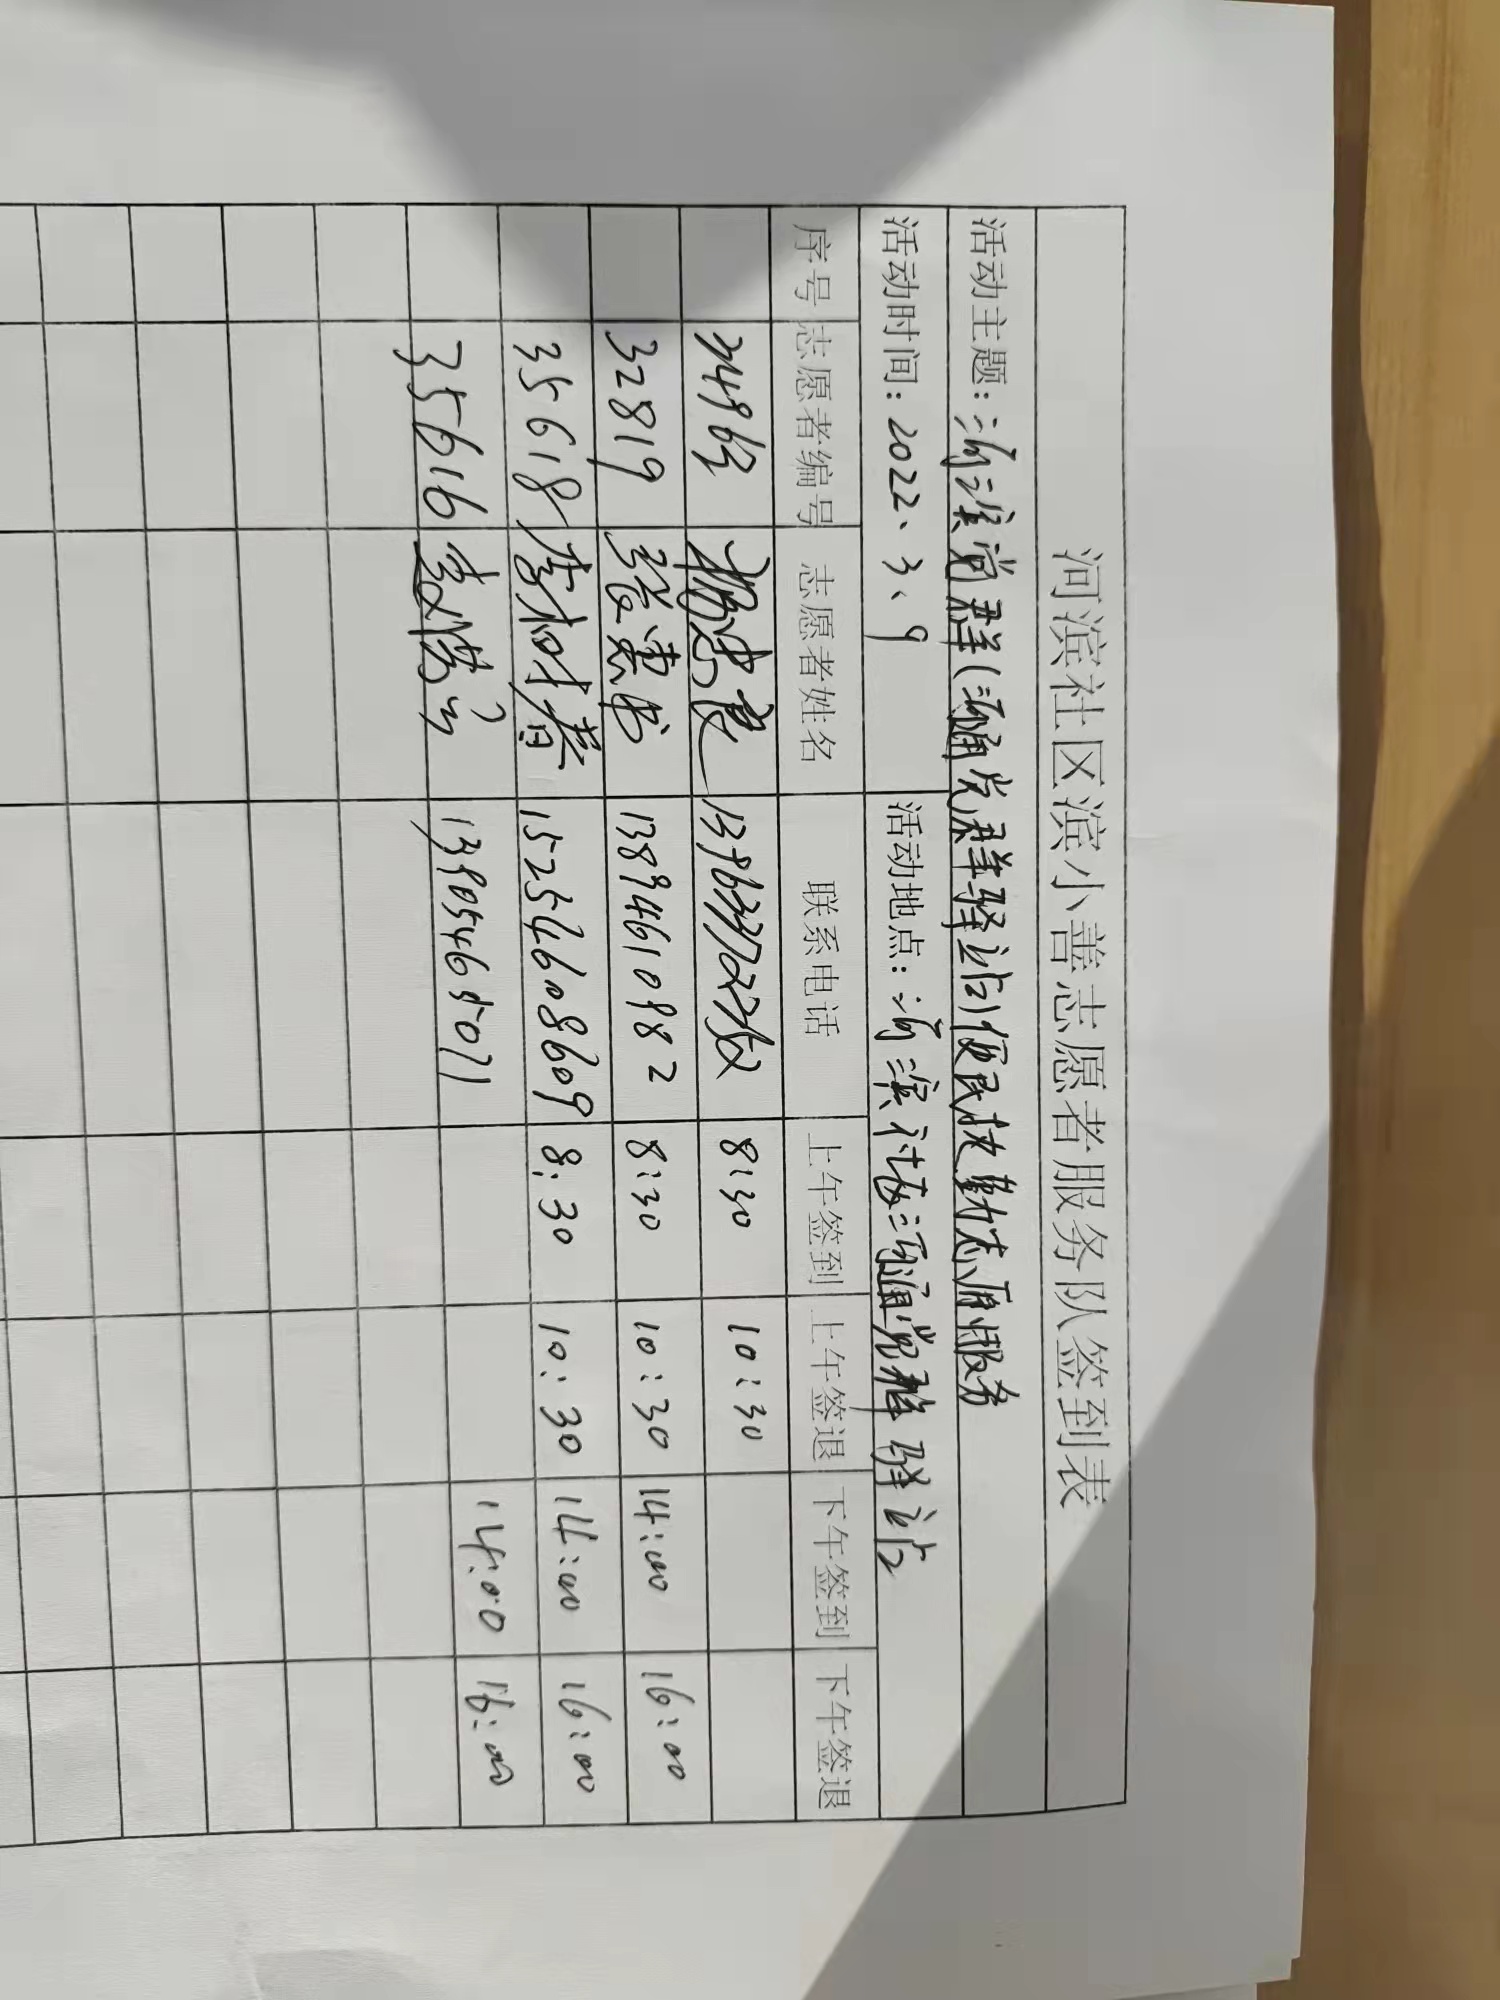 河滨社区滨小善志愿者服务队签到表
活动主题：河滨党群（河涌党群驿站）便民执勤志愿服务
活动时间：2022、3、9 活动地点：河滨社区河涌党群驿站
序号 志愿者编号 志愿者姓名 联系电话 上午签到 上午签退 下午签到 下午签退
杨忠良 8:30 10:30
32819 张惠书 13894610982 8:30 10:30 14:00 16:00
35618 李树春 15254608609 8:30 10:30 14:00 16:00
35616 13905465071 14:00 16:00